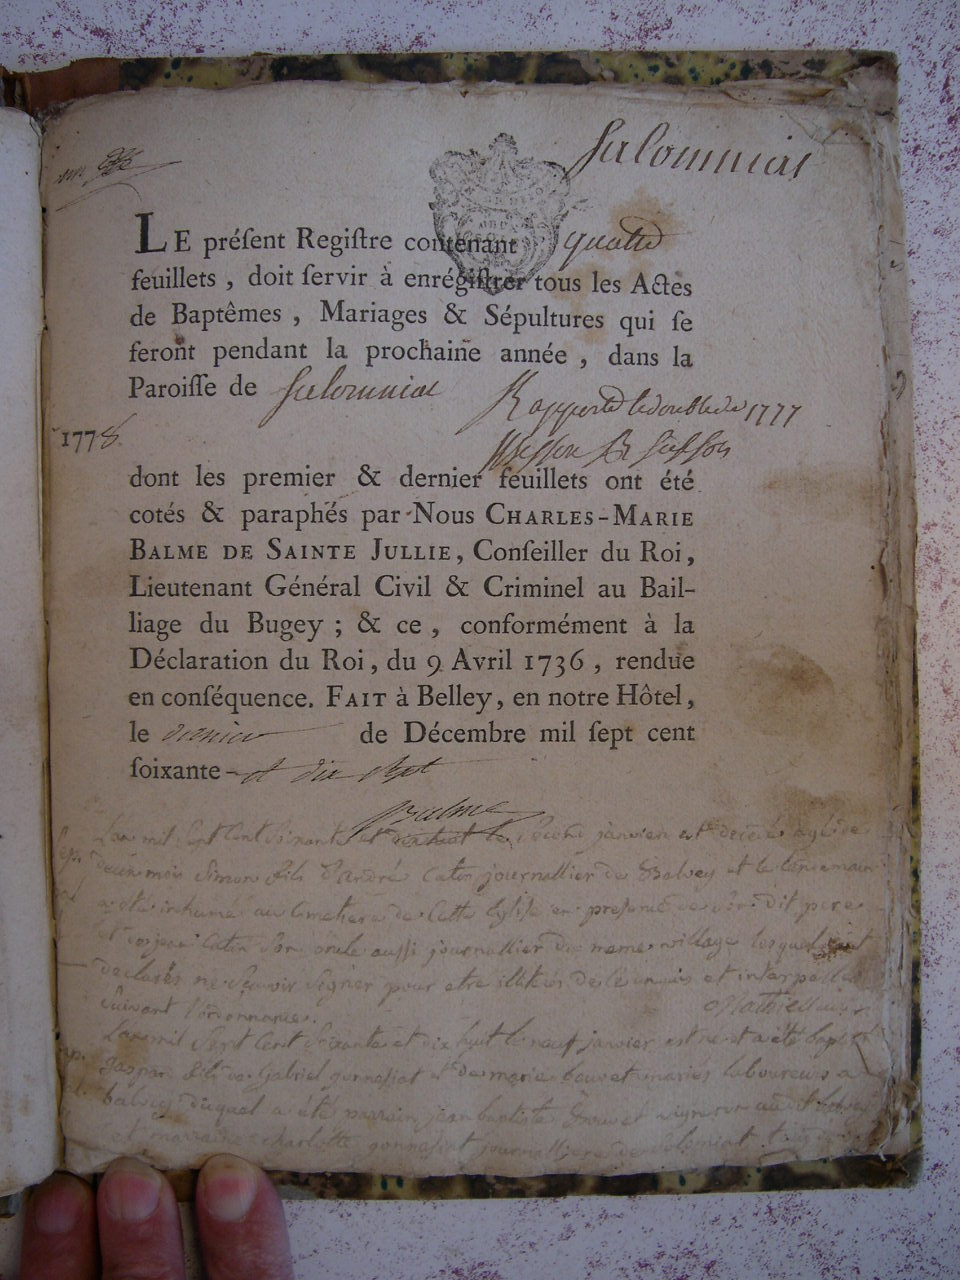 Salomniat
LE préſent Regiſtre contenant quatre
feuillets, doit ſervir à enrégiſtrer tous les Actes
de Baptêmes, Mariages & Sépultures qui ſe
feront pendant la prochaine année, dans la
Paroiſſe de Salomniat Rapporté le double de 1777
1778
dont les premier & dernier feuillets ont été
cotés & paraphés par Nous CHARLES-MARIE
BALME DE SAINTE JULLIE, Conſeiller du Roi,
Lieutenant Général Civil & Criminel au Bail-
liage du Bugey ; & ce, conformément à la
Déclaration du Roi, du 9 Avril 1736, rendue
en conſéquence. FAIT à Belley, en notre Hôtel,
le dernier de Décembre mil ſept cent
ſoixante-et dix sept
Balme
L'an mil sept cent soixante et dix huit le second janvier est décédé agé de
deux mois Simon fils d'André Catin journallier de Balvey et le lendemain
a été inhumé au cimetiere de cette Eglise en presence de son dit pere
et de jean Catin son oncle aussi journallier du meme village lesquels ont
declarés ne sçavoir signer pour etre illiterés de ce enquis et interpellés
suivant l'ordonnance.
L'an mil sept cent soixante et dix huit le neuf janvier est né et a été baptisé
Gaspar fils de Gabriel gonnessiat et de marie bouvet mariés laboureurs a
balvey duquel a été parrain jean baptiste Bouvet vigneron
et marraine charlotte gonnessiat journalliere